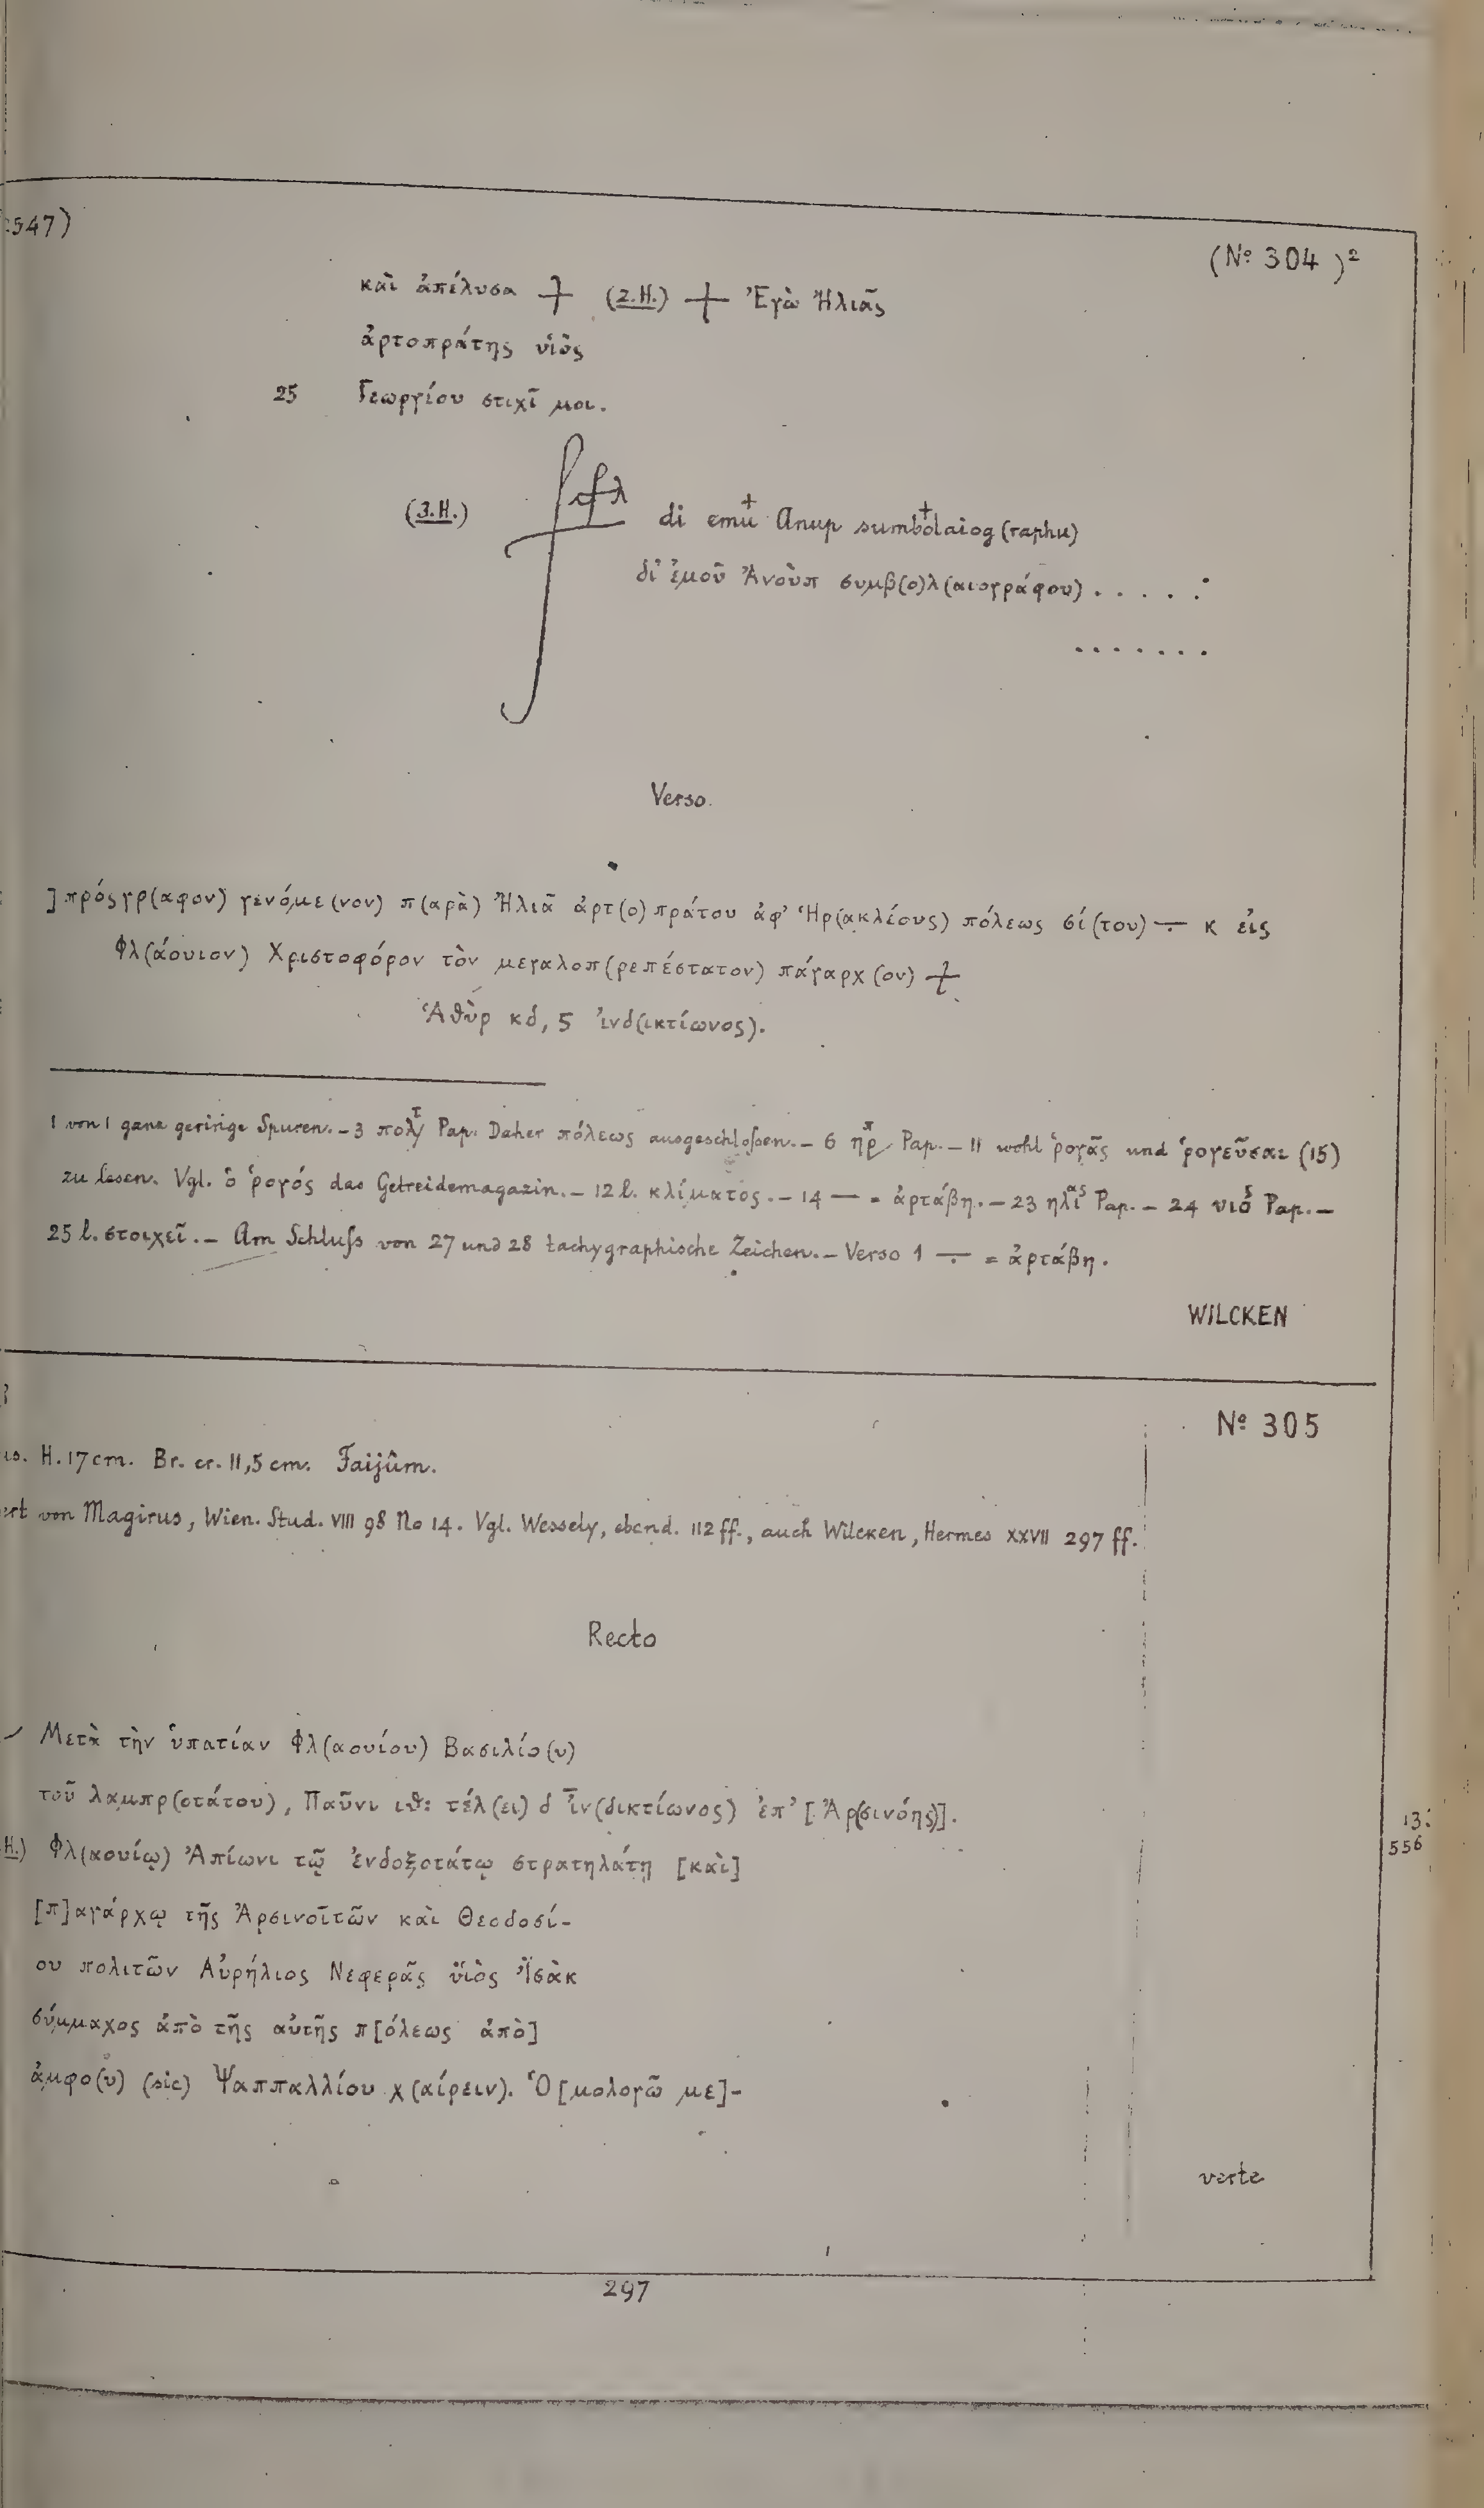 :547)
(Nº 304)²
καὶ ἀπέλυσα + (2.H.) + Ἐγὼ Ἠλιᾶς
ἀρτοπράτης υἱὸς
25 Γεωργίου στιχῖ μοι.
(3.H.) di emu Anup sumbolaiog(raphu)
δι' ἐμοῦ Ἀνοὺπ συμβ(ο)λ(αιογράφου) . . . . .
. . . . . . .
Verso.
] πρόςγρ(αφον) γενόμε(νον) π(αρὰ) Ἠλιᾶ ἀρτ(ο)πράτου ἀφ' Ἡρ(ακλέους) πόλεως σί(του) ∸ κ εἰς
Φλ(άουιον) Χριστοφόρον τὸν μεγαλοπ(ρεπέστατον) πάγαρχ(ον) +
Ἁθὺρ κδ, ϛ ἰνδ(ικτίωνος).
1 von 1 ganz geringe Spuren. – 3 πολ Pap. Daher πόλεως ausgeschloßen. – 6 ηρ Pap. – 11 wohl ῥογᾶς und ῥογεῦσαι (15)
zu lesen. Vgl. ὁ ῥογός das Getreidemagazin. – 12 l. κλίματος. – 14 — = ἀρτάβη. – 23 ηλι^ας Pap. – 24 υιο^ς Pap. –
25 l. στοιχεῖ. – Am Schluß von 27 und 28 tachygraphische Zeichen. – Verso 1 ∸ = ἀρτάβη.
WILCKEN
Nº 305
H. 17 cm. Br. cr. 11,5 cm. Faijûm.
ert von Magirus, Wien. Stud. VIII 98 No 14. Vgl. Wessely, ebend. 112 ff., auch Wilcken, Hermes XXVII 297 ff.
Recto
Μετὰ τὴν ὑπατίαν Φλ(αουίου) Βασιλίο(υ)
τοῦ λαμπρ(οτάτου), Παῦνι ιθ: τέλ(ει) δ ἰν(δικτίωνος) ἐπ' [Ἀρ(σινόης)].
H.) Φλ(αουίῳ) Ἀπίωνι τῷ ἐνδοξοτάτῳ στρατηλάτῃ [καὶ]
[π]αγάρχῳ τῆς Ἀρσινοϊτῶν καὶ Θεοδοσί-
ου πολιτῶν Αὐρήλιος Νεφερᾶς ὑϊὸς Ἰσὰκ
σύμμαχος ἀπὸ τῆς αὐτῆς π[όλεως ἀπὸ]
ἀμφο(υ) (sic) Ψαππαλλίου χ(αίρειν). Ὁ[μολογῶ με]-
13:
556
verte
297